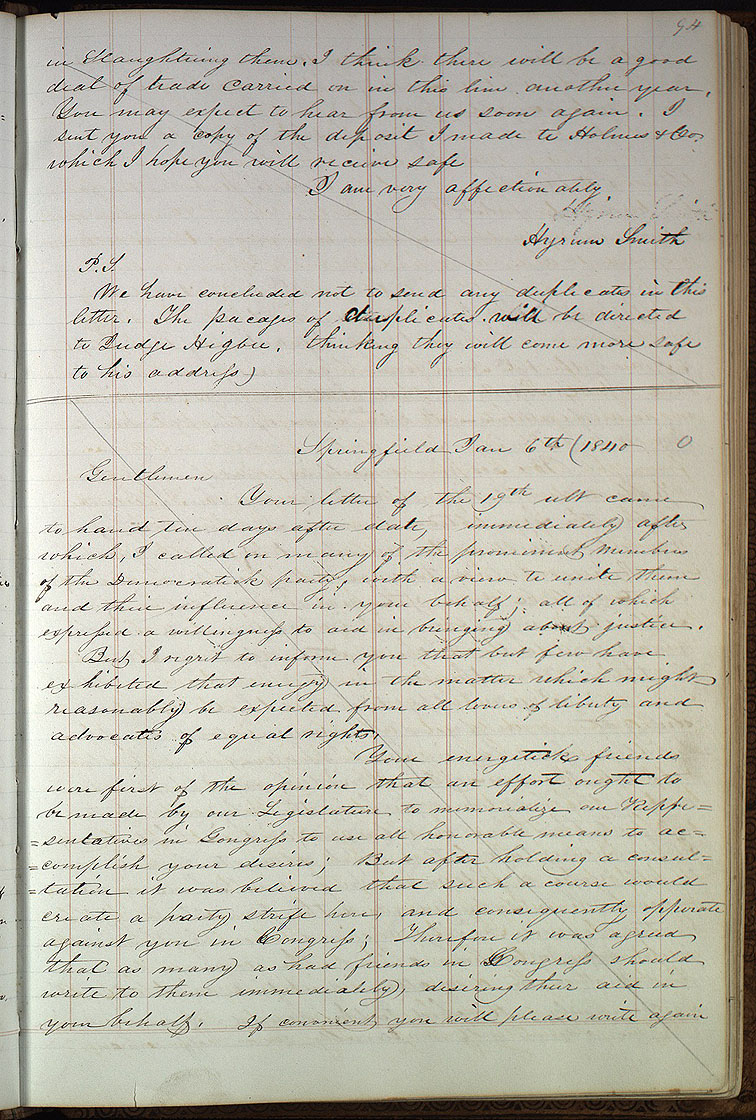 94
in Slaughtring them. I think there will be a good
deal of trade carried on in this line another year.
You may expect to hear from us soon again. I
sent you a copy of the deposit I made to Holmes & Co.
which I hope you will receive safe
I am very affectionately
Hyrum Smith
Hyrum Smith
P.S.
We have concluded not to send any duplicates in this
letter. The pacages of duplicates will be directed
to Judge Higbee. thinking they will come more safe
to his address)
Springfield Jan 6th (1840 0
Gentlemen
Your letter of the 19th ult came
to hand ten days after date, immediately after
which, I called on many of the prominent members
of the Democratick party, with a view to unite them
and their influence in your behalf; all of which
expressed a willingness to aid in bringing about justice.
But I regrit to inform you that but few have
exhibited that energy in the matter which might
reasonably be expected from all lovers of liberty and
advocates of equal rights,
Your energetick friends
were first of the opinion that an effort ought to
be made by our Legislature to memorialize our Reppre=
=sentatives in Congress to use all honorable means to ac=
=complish your desires; But after holding a consul=
=tation it was believed that such a course would
create a party strife here, and consequently opporate
against you in Congress; Therefore it was agreed
that as many as had friends in Congress should
write to them immediately, desiring their aid in
your behalf. If convenient you will please write again